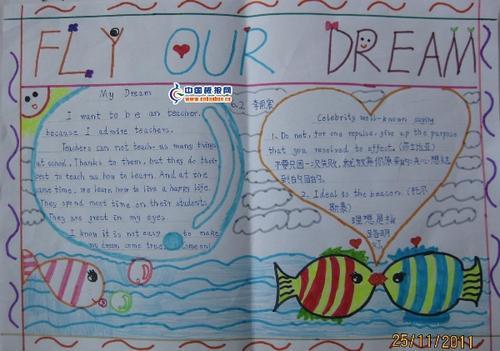 FLY OUR DREAM
中国板报网
www.cnbanbao.cn
6.2
My Dream
I want to be an teacher,
because I admire teachers.
Teachers can not teach us many things
at school. Thanks to them, but they do their
best to teach us how to learn. And at the
same time, we learn how to live a happy life.
They spend most time on their students.
They are great in my eyes.
I know it is not easy to make
my dream come true.
Celebrity well-known saying
1. Do not, for one repulse, give up the purpose
that you resolved to effect.
不要只因一次失败，就放弃你原来的决心想达
到的目的。
2. Ideal is the beacon. (托尔
斯泰)
理想是
路明
灯
25/11/2011